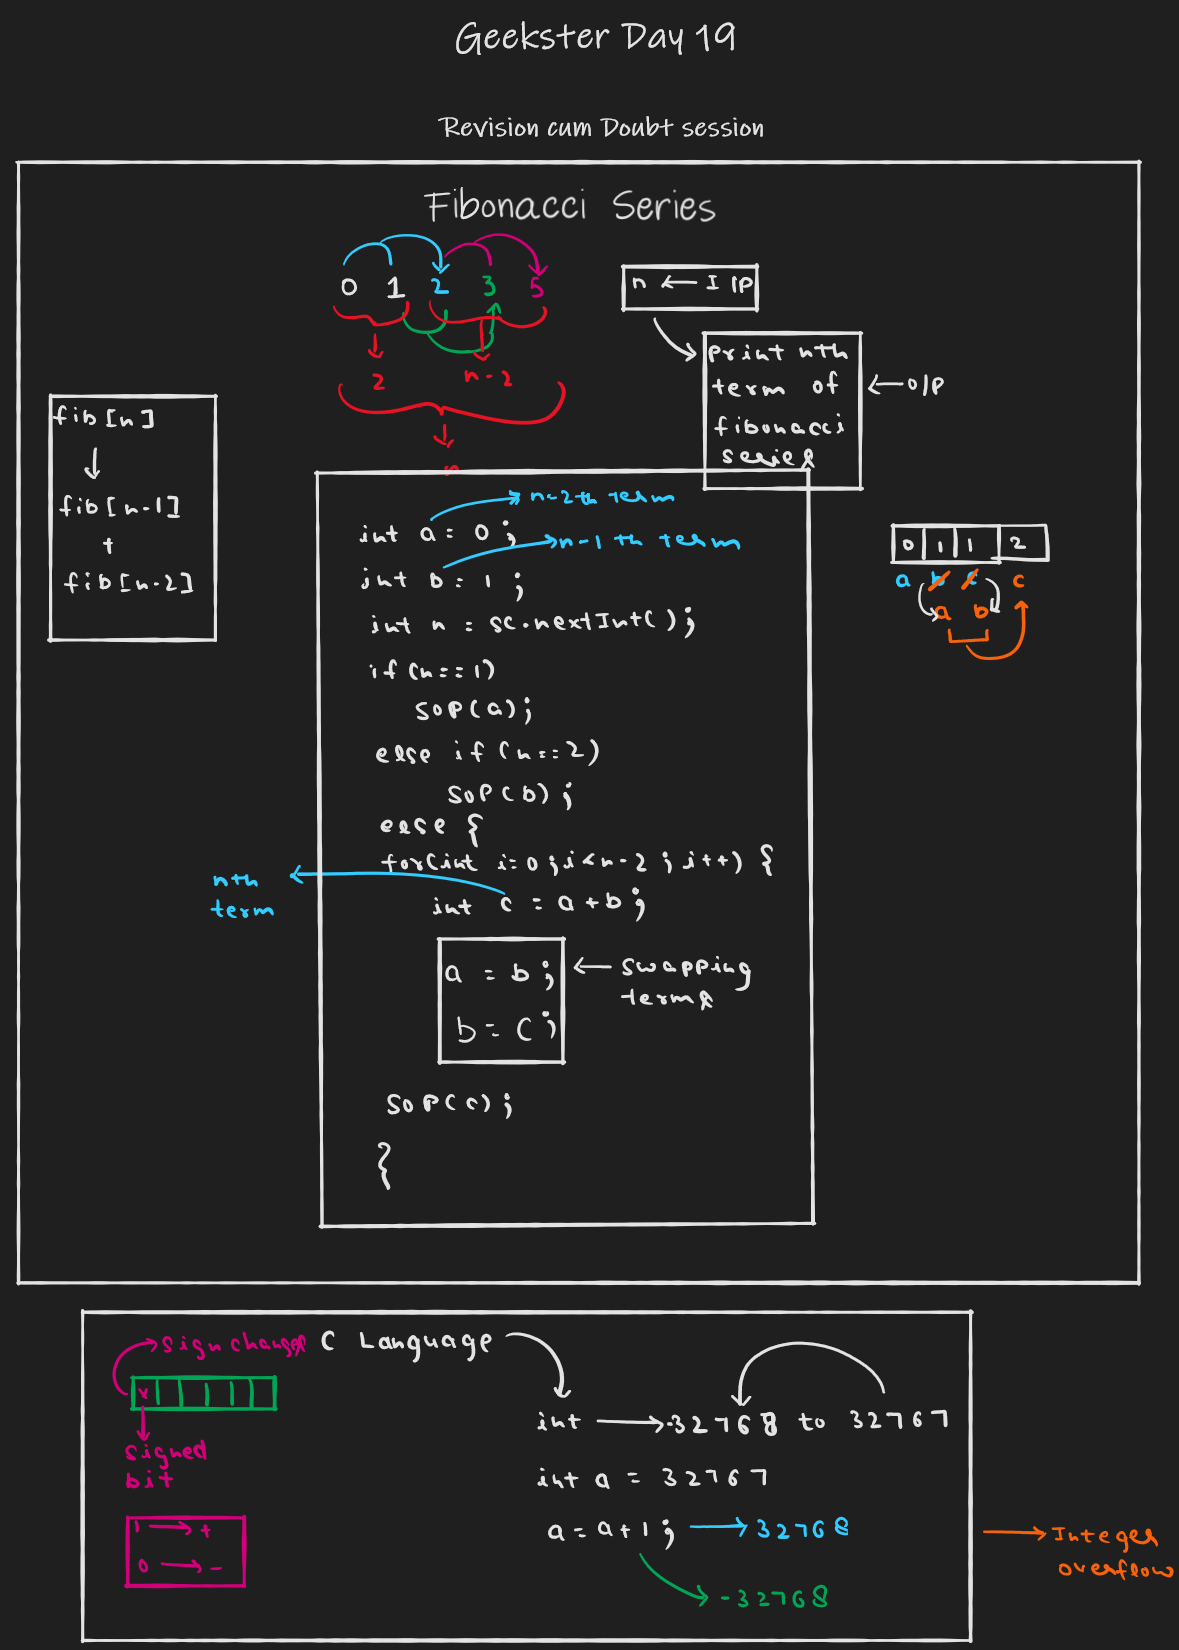 Geekster Day 19
Revision cum Doubt session
Fibonacci Series
0 1 2 3 5
2
n-2
n
n ← I/P
print nth
term of
fibonacci
series
← O/P
fib[n]
↓
fib[n-1]
+
fib[n-2]
→ n-2th term
int a = 0 ;
→ n-1 th term
int b = 1 ;
int n = sc.nextInt();
if (n==1)
SOP(a);
else if (n==2)
SOP(b);
else {
for(int i=0;i<n-2;i++) {
nth
term
int c = a+b;
a = b;
b = c;
← swapping
terms
SOP(c);
{
0 1 1 2
a b c c
a b
C Language
sign changes
x
signed
bit
1 → +
0 → -
int → -32768 to 32767
int a = 32767
a = a+1; → 32768
-32768
→ Integer
overflow